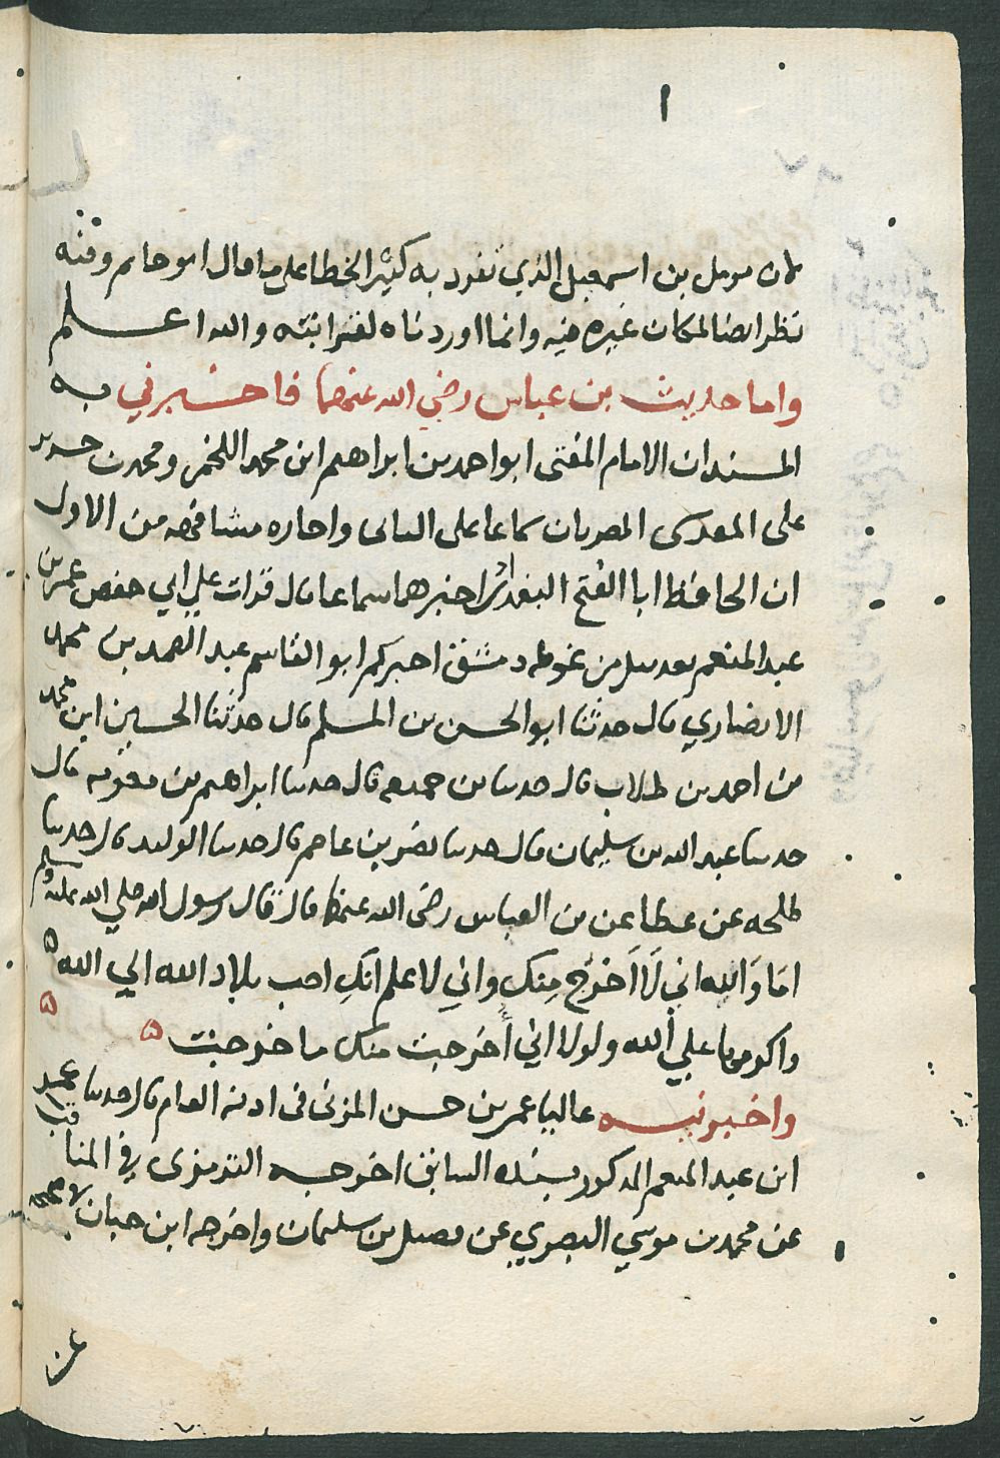 لان مومل بن اسمعيل الذي تفرد به كثير الخطا على ما قال ابو حاتم وفيه
نظر ايضا لمكان غيره فيه وانما اوردناه لغرابته والله اعلم
واما حديث بن عباس رضي الله عنهما فاخبرني به
المسندان الامام المفتى ابو احمد بن ابراهيم ابن محمد اللخمي ومحمد بن
على المصريان سماعا على الثانى واجازه مشافهه من الاول
ان الحافظ ابا الفتح اخبرهما سماعا قال قرات علي ابي حفص عمر بن
عبد المنعم من غوطه دمشق اخبركم ابو القاسم عبد الصمد بن محمد
الانصاري قال حدثنا ابو الحسن بن المسلم قال حدثنا الحسين ابن محمد
بن احمد بن طلاب قال حدثنا بن جميع قال حدثنا ابراهيم بن معويه قال
حدثنا عبد الله بن سليمان قال حدثنا نصر بن عاصم قال حدثنا الوليد قال حدثنا
طلحه عن عطا عن بن العباس رضى الله عنهما قال قال رسول الله صلي الله عليه وسلم
اما والله اني لا اخرج منك واني لاعلم انك احب بلاد الله الي الله ه
واكرمها علي الله ولولا اني اخرجت منك ما خرجت ه ه
واخبرنيه عاليا عمر بن حسن المزنى فى اذنه العام قال حدثنا عمر
ابن عبد المنعم المذكور بسنده السابق اخرجه الترمذى في المناقب
عن محمد بن موسي البصري عن فضيل بن سليمان واخرجه ابن حبان
عن